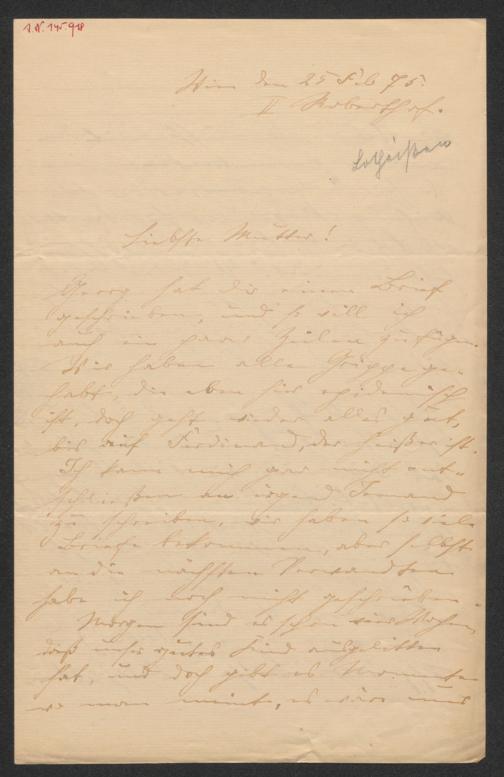 I. N. 145.918
Wien den 25 Feb 75.
II
Lotheissen
Liebste Mutter!
Georg hat dir einen Brief
geschrieben, und so will ich
auch ein paar Zeilen zufügen.
Wir haben alle Grippe ge-
habt, die eben hier epidemisch
ist, doch geht wieder alles gut,
bis auf Ferdinand, der heißer ist.
Ich kann mich gar nicht ent-
schließen an irgend Jemand
zu schreiben, wir haben so viele
Briefe bekommen, aber selbst
an die nächsten Verwandten
habe ich noch nicht geschrieben.
Morgen sind es schon vier Wochen,
daß unser gutes Kind ausgelitten
hat, und doch gibt es Momente
wo man meint, es wäre uns